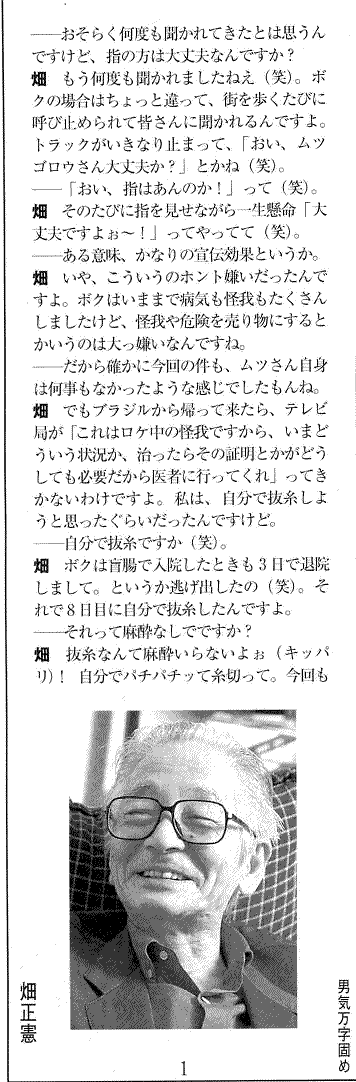 ——おそらく何度も聞かれてきたとは思うん
ですけど、指の方は大丈夫なんですか？
畑　もう何度も聞かれましたねえ（笑）。ボ
クの場合はちょっと違って、街を歩くたびに
呼び止められて皆さんに聞かれるんですよ。
トラックがいきなり止まって、「おい、ムツ
ゴロウさん大丈夫か？」とかね（笑）。
——「おい、指はあんのか！」って（笑）。
畑　そのたびに指を見せながら一生懸命「大
丈夫ですよぉ～！」ってやってて（笑）。
——ある意味、かなりの宣伝効果というか。
畑　いや、こういうのホント嫌いだったんで
すよ。ボクはいままで病気も怪我もたくさん
しましたけど、怪我や危険を売り物にすると
かいうのは大っ嫌いなんですね。
——だから確かに今回の件も、ムツさん自身
は何事もなかったような感じでしたもんね。
畑　でもブラジルから帰って来たら、テレビ
局が「これはロケ中の怪我ですから、いまど
ういう状況か、治ったらその証明とかがどう
しても必要だから医者に行ってくれ」ってき
かないわけですよ。私は、自分で抜糸しよ
うと思ったぐらいだったんですけど。
——自分で抜糸ですか（笑）。
畑　ボクは盲腸で入院したときも３日で退院
しまして。というか逃げ出したの（笑）。そ
れで８日目に自分で抜糸したんですよ。
——それって麻酔なしでですか？
畑　抜糸なんて麻酔いらないよぉ（キッパ
リ）！　自分でパチパチッて糸切って。今回も
畑正憲
男気万字固め
1